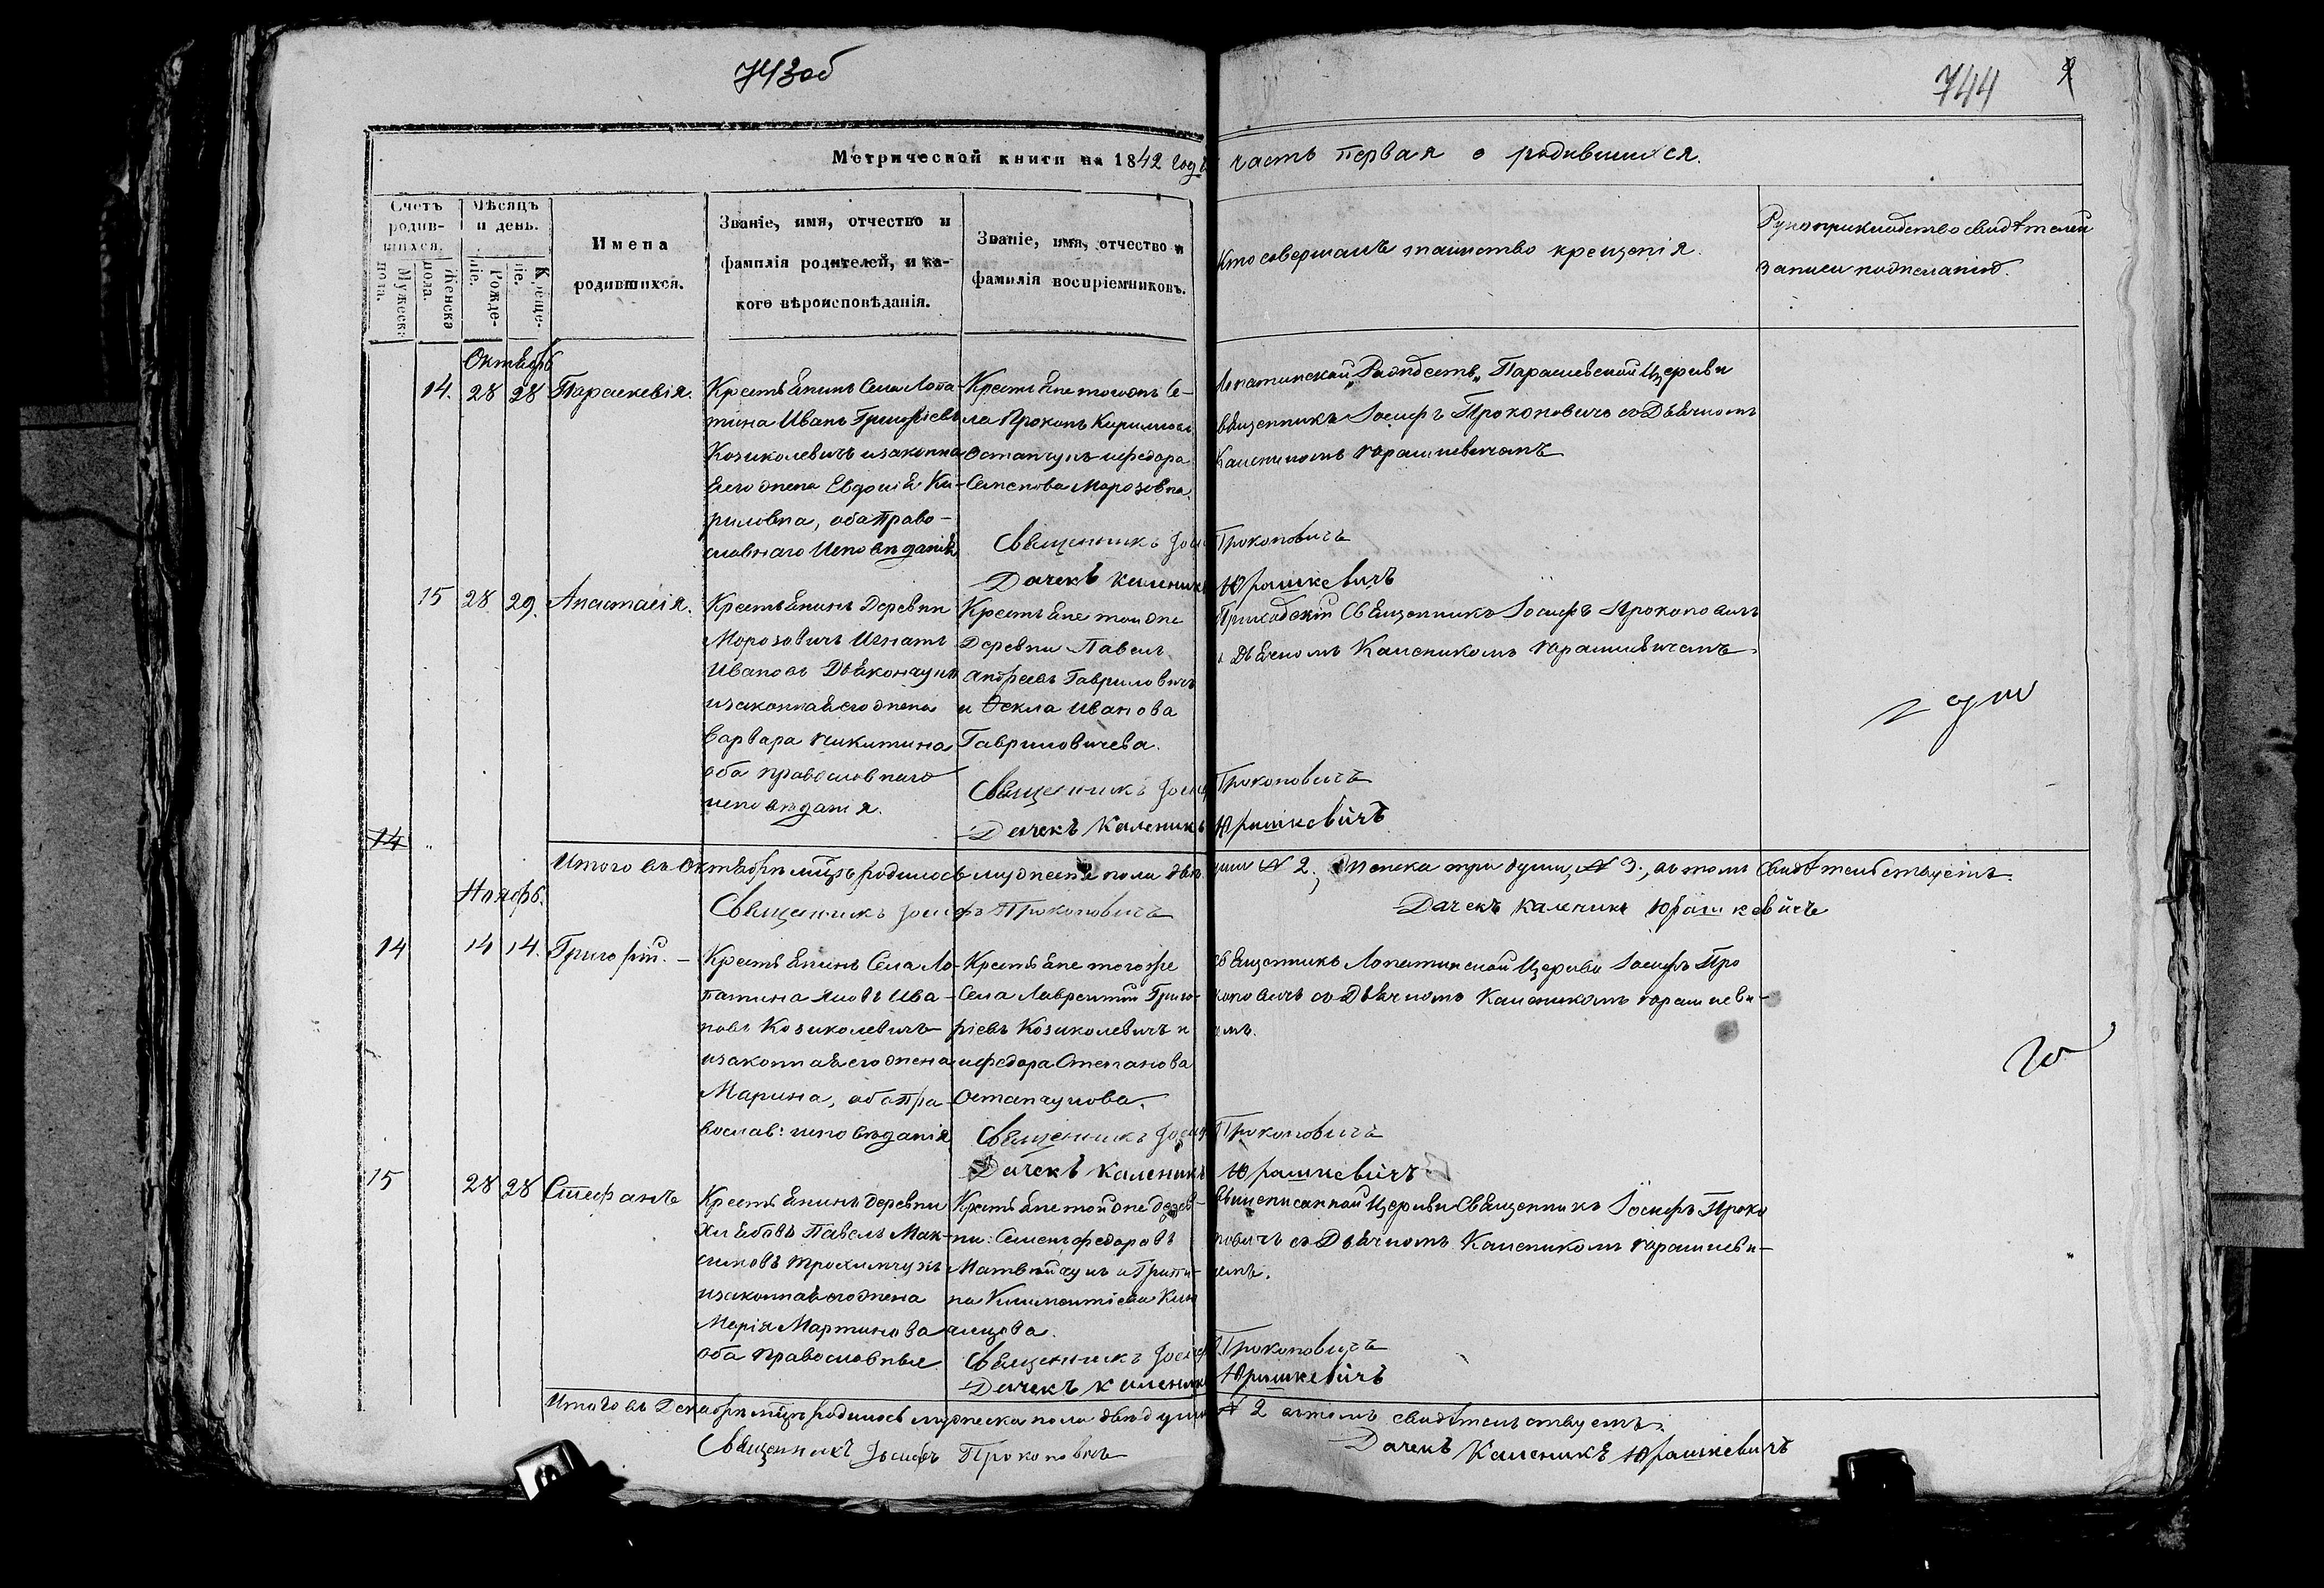 743 об
744
Метрической книги на 1842 годъ часть первая о родившихся.
Счетъ родив-шихся.
Мужеска пола.
Женска пола.
Мѣсяцъ и день.
Рожде-ніе.
Креще-ніе.
Имена
родившихся.
Званіе, имя, отчество и
фамилія родителей, и ка-
кого вѣроисповѣданія.
Званіе, имя, отчество и
фамилія воспріемниковъ.
Кто совершалъ таинство крещенія.
Рукоприкладство свидѣтелей
записи по желанію.
Октябрь
14. 28 28 Параскевія.
Крестьѣнинъ Села Лопа-
тина Иванъ Григорьевъ
Козиколевичъ и законна
ѣ его жена Евдокіѣ Ки-
риловна, оба Право-
славнаго Исповѣданіѣ
Крестьѣне тогожъ Се-
ла Прокопъ Кириловъ
Остапчукъ и федора
Семенова Морозовна.
Лопатинской Рождеств. Парашевской Церкви
свѣщенникъ Іосифъ Прокоповичъ со Дьѣчкомъ
Калеником Юрашкевичемъ
Свѣщенникъ Іосифъ Прокоповичъ
Дячекъ Каленикъ Юрашкевичъ
15 28 29. Анастасія.
Крестьѣнинъ Деревни
Морозовичъ Игнатъ
Ивановъ Дьѣкончукъ
и законнаѣ его жена
Варвара Никитина
оба православнаго
исповѣданія.
Крестьѣне той же
Деревни Павелъ
Андреевъ Гавриловичъ
и Ѳекла Иванова
Гавриловичева.
Приходскій Свѣщенникъ Іосифъ Прокоповичъ
с Дьѣчкомъ Калеником Юрашкевичемъ.
Свѣщенникъ Іосифъ Прокоповичъ
Дячекъ Каленикъ Юрашкевичъ
14
Итого въ Октѣбрѣ мцѣ родилось мужеска пола двѣ души № 2, Женска три души, № 3, въ томъ Свидѣтельствуемъ.
Свѣщенникъ Іосифъ Прокоповичъ
Дячекъ Каленикъ Юрашкевичъ
Ноябрь.
14 14 14. Григорій. -
Крестьѣнинъ Села Ло-
патина Яковъ Ива-
новъ Козиколевичъ
и законнаѣ его жена
Марина, оба Пра-
вослав: исповѣданія
Крестьѣне того же
Села Лаврентій Григо-
ріевъ Козиколевичъ и
и федора Степанова
Остапчукова.
свѣщенникъ Лопатинской Церкви Іосифъ Про
коповичъ со Дьѣчкомъ Калеником Юрашкеви-
емъ.
Свѣщенникъ Іосифъ Прокоповичъ
Дячекъ Каленикъ Юрашкевичъ
15 28 28 Стефанъ
Крестьѣнинъ деревни
Хлѣбовъ Павелъ Мак-
симовъ Трохимчукъ
и законнаѣ его жена
Марія Мартинова
оба православные
Крестьѣне той же дерев-
ни: Семенъ федоровъ
Матвійчукъ и Грипи-
на Климентіева
Вышеписанной Церкви Свѣщенникъ Іосифъ Проко
повичъ со Дьѣчкомъ Калеником Юрашкеви-
чемъ.
Свѣщенникъ Іосифъ Прокоповичъ
Дячекъ Каленикъ Юрашкевичъ
Итого въ Декабрѣ мцѣ родилось мужеска пола двѣ души № 2 въ томъ свидѣтельствуемъ.
Свѣщенникъ Іосифъ Прокоповичъ
Дячекъ Каленикъ Юрашкевичъ